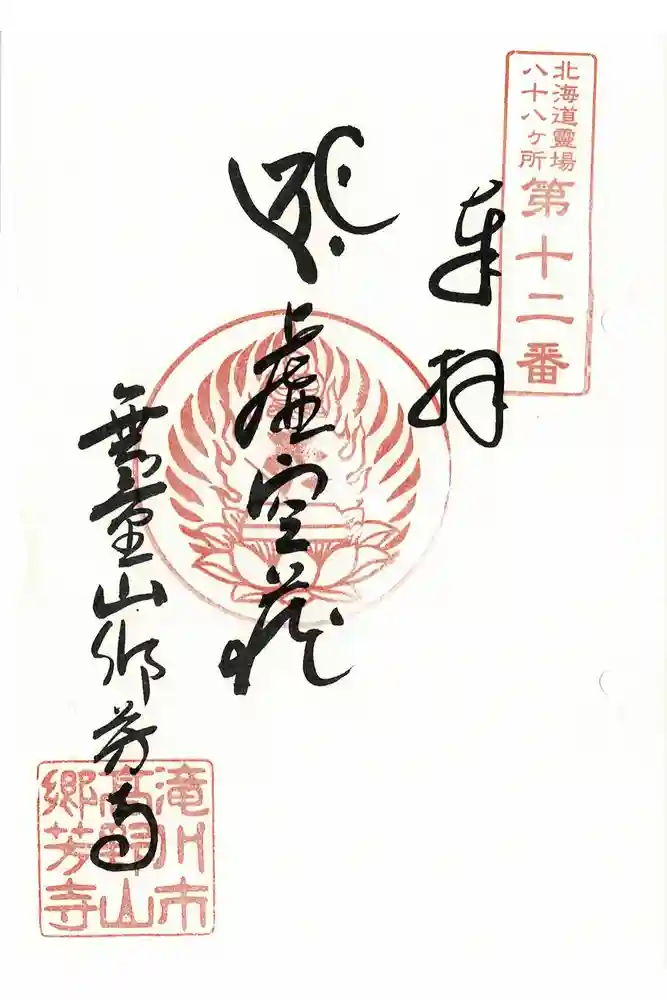 北海道靈場
八十八ヶ所
第十二番
奉拝
虚空蔵
無量山郷芳寺
滝川市
高野山
郷芳寺